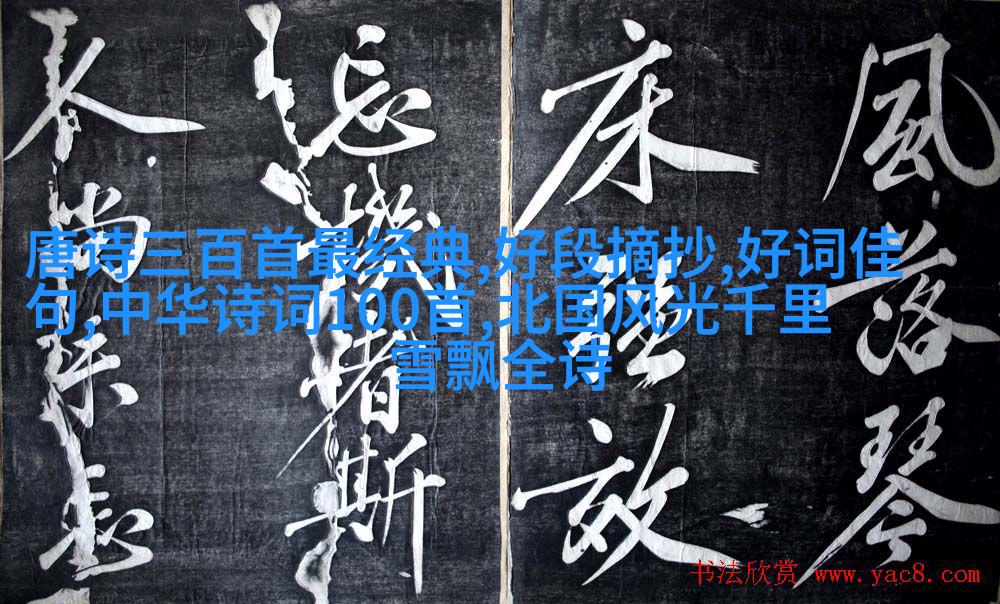 風落琴
床
忘機者斯
尚
唐诗三百首最经典,好段摘抄,好词佳
句,中华诗词100首,北国风光千里
雪飘全诗
书法欣赏 www.yac8.com